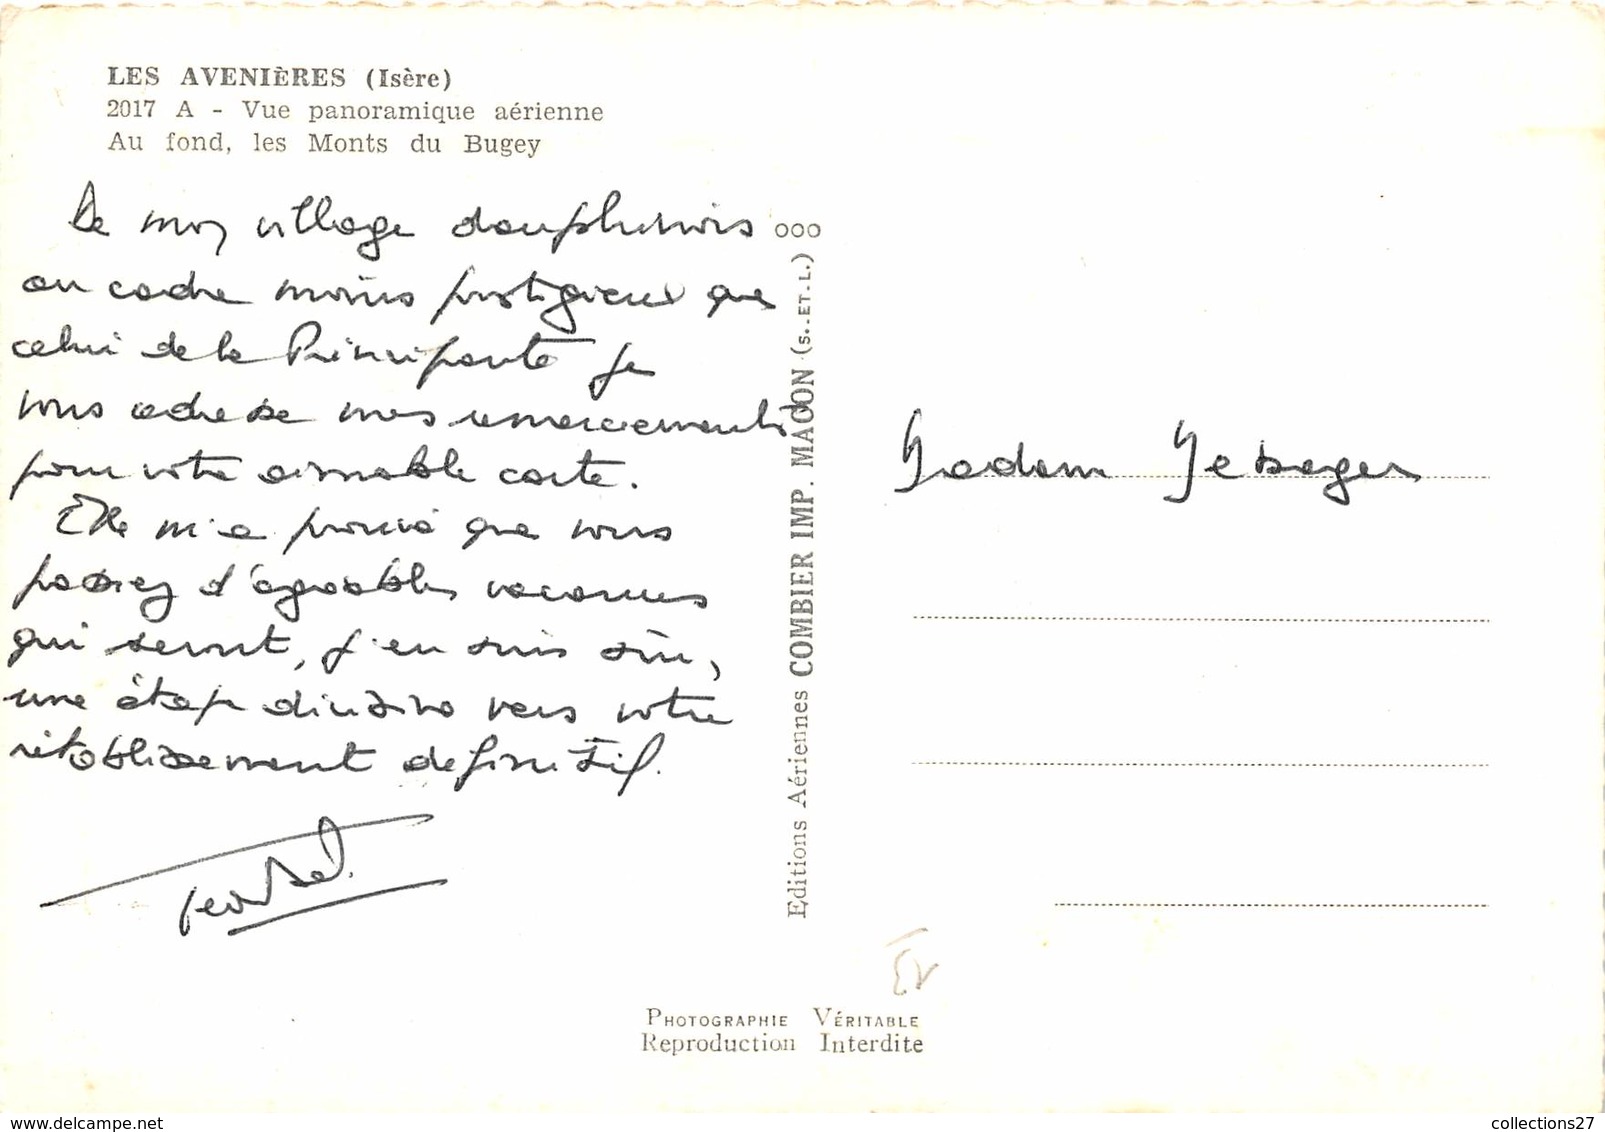 LES AVENIÈRES (Isère)
2017 A - Vue panoramique aérienne
Au fond, les Monts du Bugey
De mon village dauphinois
au cadre moins prestigieux que
celui de la Principauté je
vous adresse mes remerciements
pour votre aimable carte.
Elle m'a prouvé que vous
passiez d'agréables vacances
qui seront, j'en suis sûr,
une étape décisive vers votre
rétablissement definitif.
ooo
Editions Aériennes COMBIER IMP. MACON (S.-ET-L.)
Madame
EV
PHOTOGRAPHIE VÉRITABLE
Reproduction Interdite
collections27